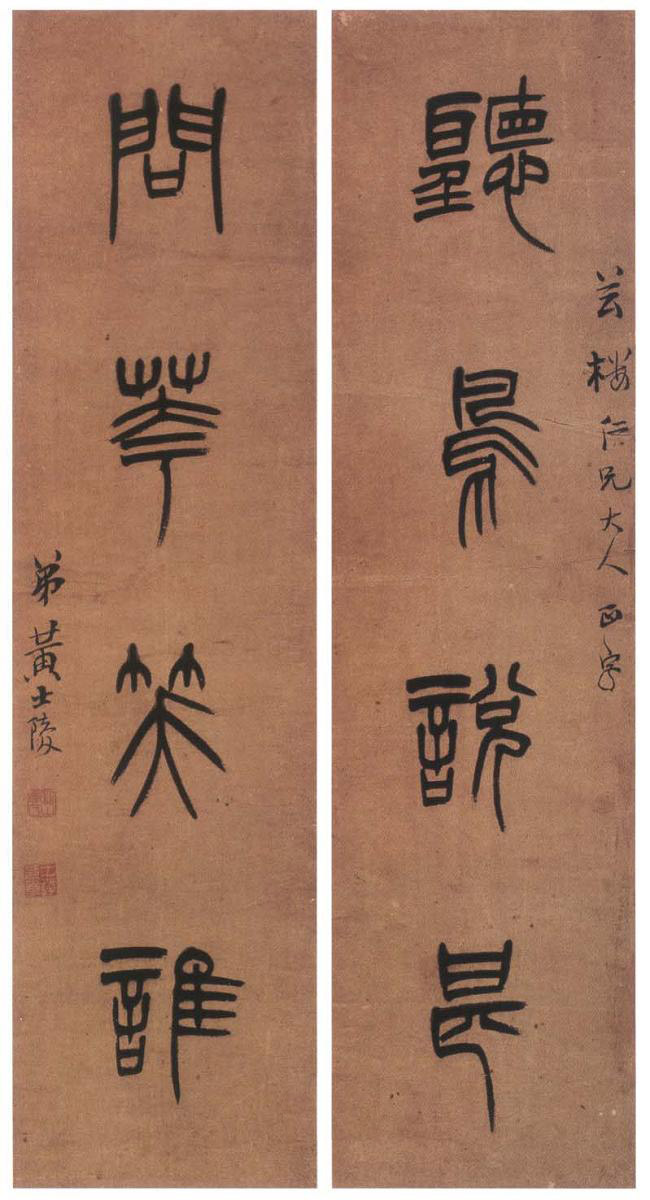 芸樓仁兄大人正字
聽鳥說甚
問華笑誰
弟黃士陵